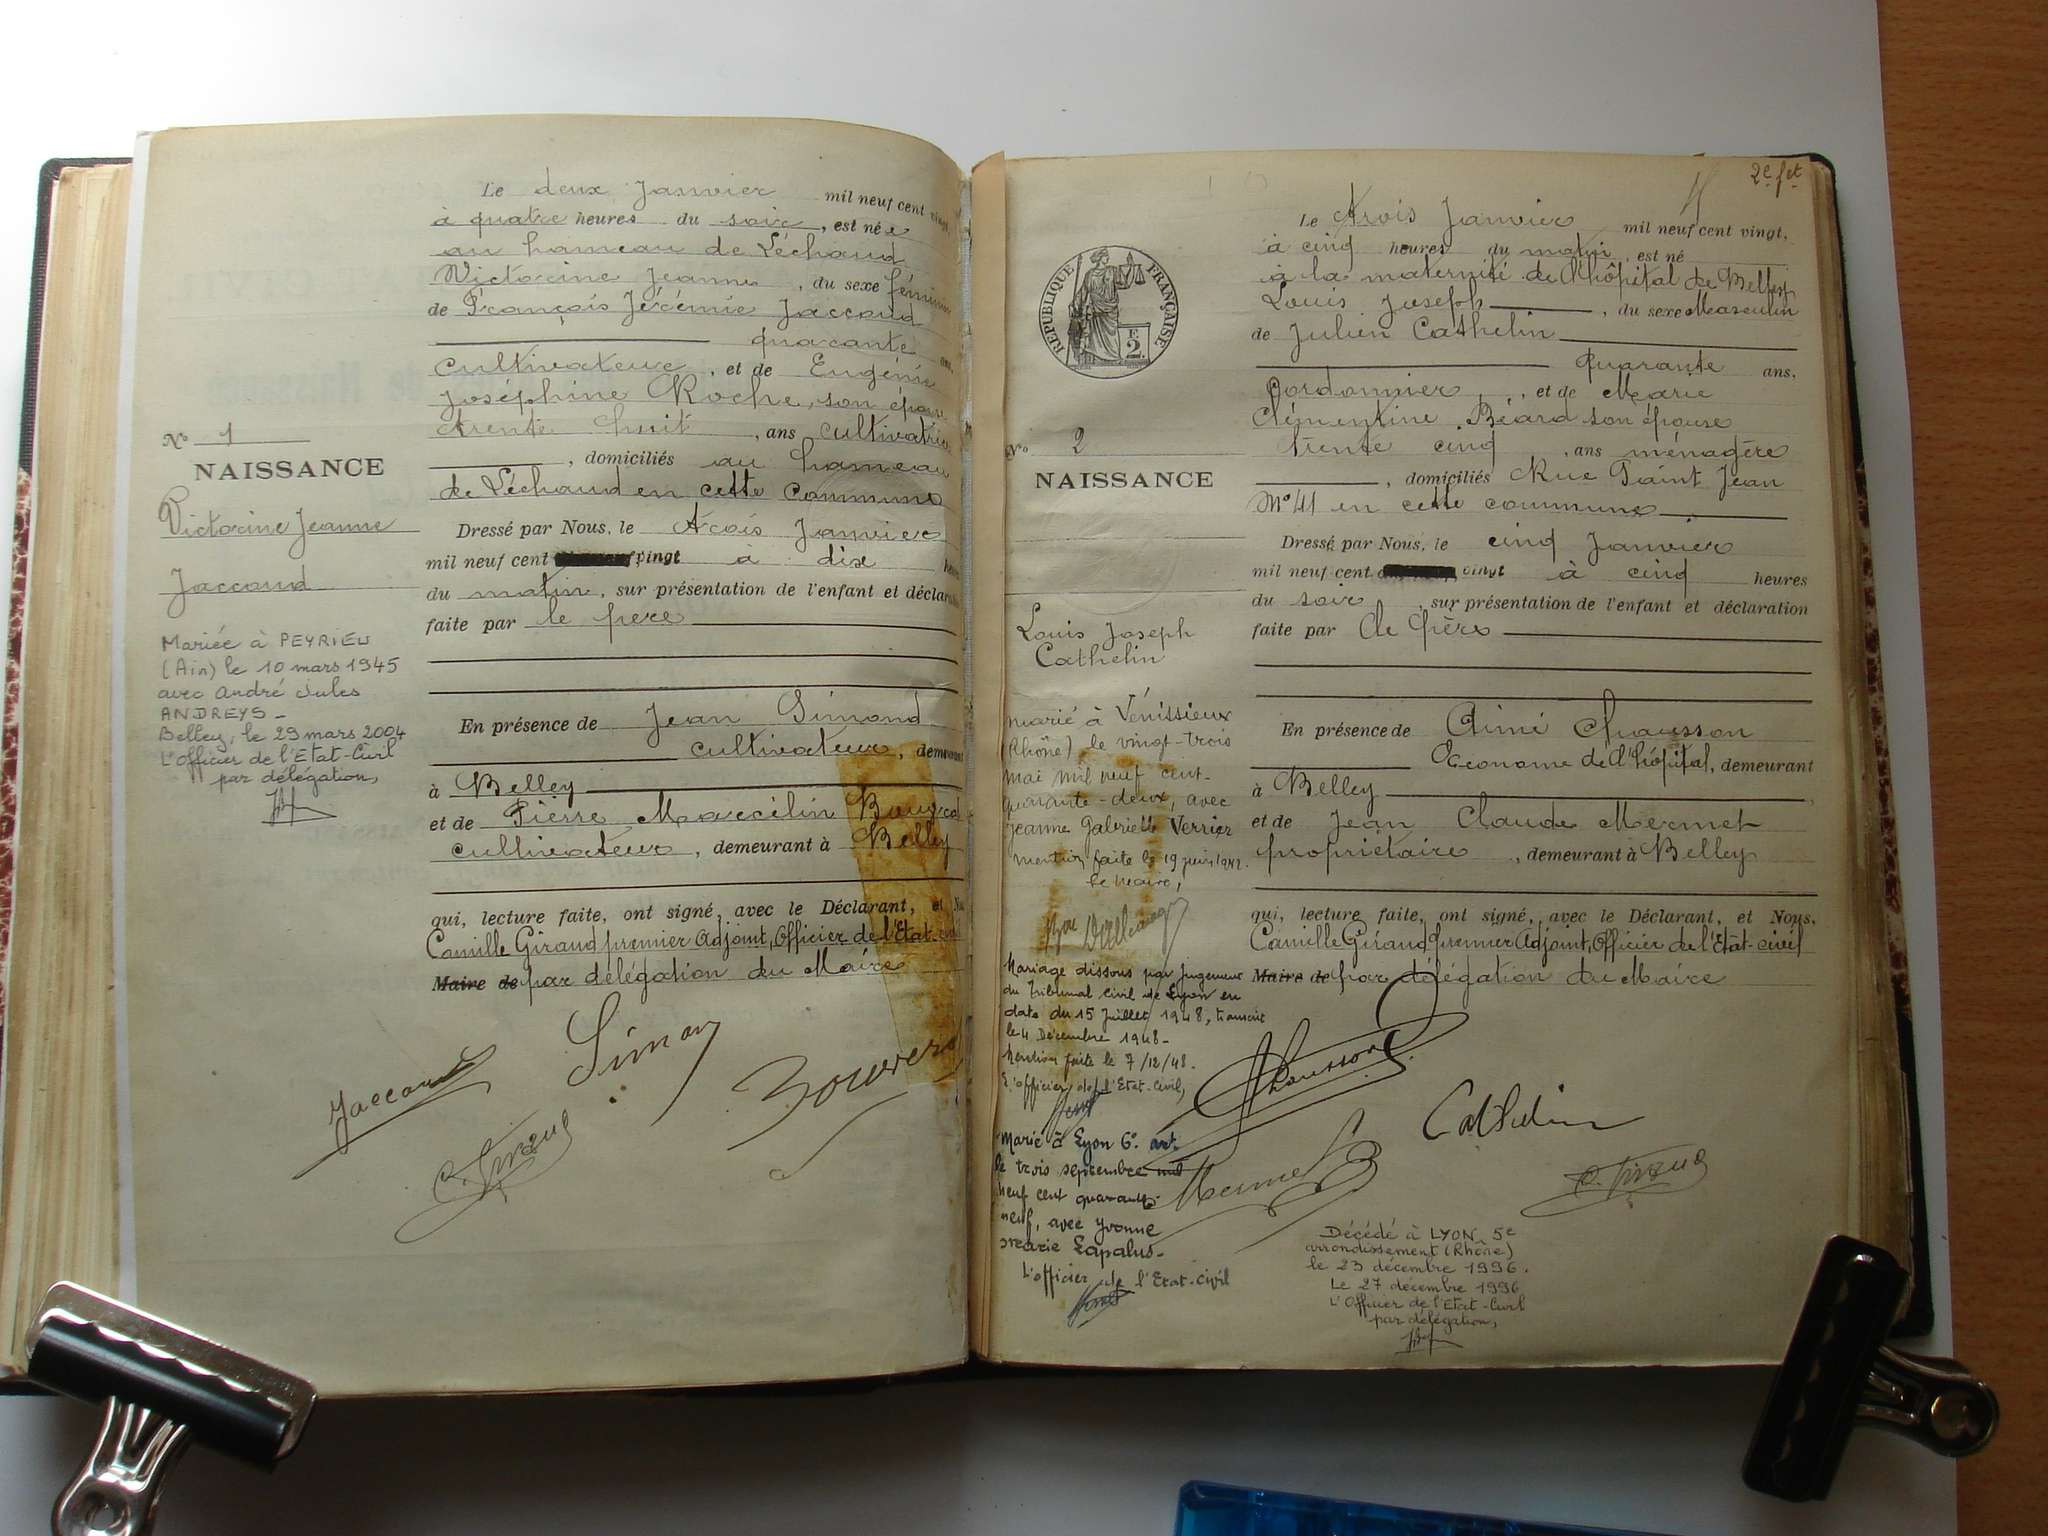 Le deux Janvier mil neuf cent vingt,
à quatre heures du soir, est née
au hameau de Léchaud
Victorine Jeanne, du sexe féminin
de François Jérémie Jaccoud
quarante ans,
cultivateur, et de Eugénie
Joséphine Roche, son épouse
trente huit, ans cultivatrice
, domiciliés au hameau
de Léchaud en cette commune
Nº 1
NAISSANCE
Victorine Jeanne
Jaccoud
Mariée à PEYRIEU
(Ain) le 10 mars 1945
avec André Jules
ANDREYS_
Belley, le 29 mars 2004
L'Officier de l'Etat-Civil
par délégation,
Dressé par Nous, le trois Janvier
mil neuf cent vingt à dix heures
du matin, sur présentation de l'enfant et déclara
faite par le père
En présence de Jean Simond
cultivateur, demeurant
à Belley
et de Pierre Marcélin
cultivateur, demeurant à Belley
qui, lecture faite, ont signé, avec le Déclarant, et No
Camille Giraud premier Adjoint, Officier de l'Etat-civil
Maire de par délégation du Maire
Jaccoud
Simon
C. Giraud
2e. fet
Le trois Janvier mil neuf cent vingt,
à cinq heures du matin, est né
à la maternité de l'hôpital de Belley
Louis Joseph, du sexe Masculin
de Julien Cathelin
quarante ans,
Cordonnier, et de Marie
Clémentine Béard son épouse
trente cinq, ans ménagère
, domiciliés Rue Saint Jean
Nº 41 en cette commune
RÉPUBLIQUE FRANÇAISE
E
2.
Nº 2
NAISSANCE
Louis Joseph
Cathelin
marié à Vénissieux
(Rhône), le vingt-trois
mai mil neuf cent-
quarante-deux, avec
Jeanne Gabrielle Verrier
mention faite le 19 juin 1942.
le maire,
Mariage dissous par jugement
du Tribunal Civil de Lyon en
date du 15 Juillet 1948, transcrit
le 4 Décembre 1948-
Mention faite le 7/12/48.
L'officier de l'Etat-Civil,
Marié à Lyon 6º. art.
le trois septembre mil
neuf cent quarante-
neuf, avec Yvonne
Marie Lapalus-
L'officier de l'Etat-Civil
Dressé par Nous, le cinq Janvier
mil neuf cent vingt à cinq heures
du soir, sur présentation de l'enfant et déclaration
faite par le père
En présence de Aimé Chausson
Econome de l'hôpital, demeurant
à Belley
et de Jean Claude Mermet
propriétaire, demeurant à Belley
qui, lecture faite, ont signé, avec le Déclarant, et Nous,
Camille Giraud premier Adjoint, Officier de l'Etat-civil
Maire de par délégation du Maire
Chausson
Cathelin
Mermet
C. Giraud
Décédé à LYON 5e
arrondissement (Rhône)
le 23 décembre 1996.
Le 27 décembre 1996
L'Officier de l'Etat-Civil
par délégation,